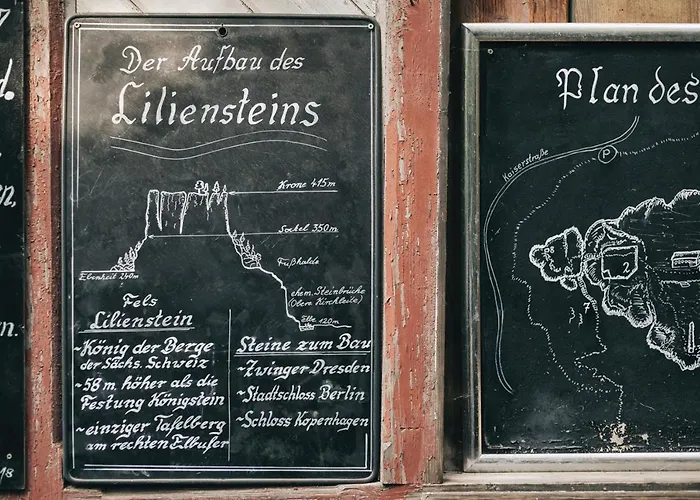 Der Aufbau des
Liliensteins
Krone 415m
Sockel 350m
Ebenheit 240m
Fußhalde
ehem. Steinbrüche
(Obere Kirchleite)
Elbe 120m
Fels
Lilienstein
~König der Berge
der Sächs. Schweiz
~58 m höher als die
Festung Königstein
~einziger Tafelberg
am rechten Elbufer
Steine zum Bau
~Zwinger Dresden
~Stadtschloss Berlin
~Schloss Kopenhagen
Plan des
Kaiserstraße
P
8
2
7
1